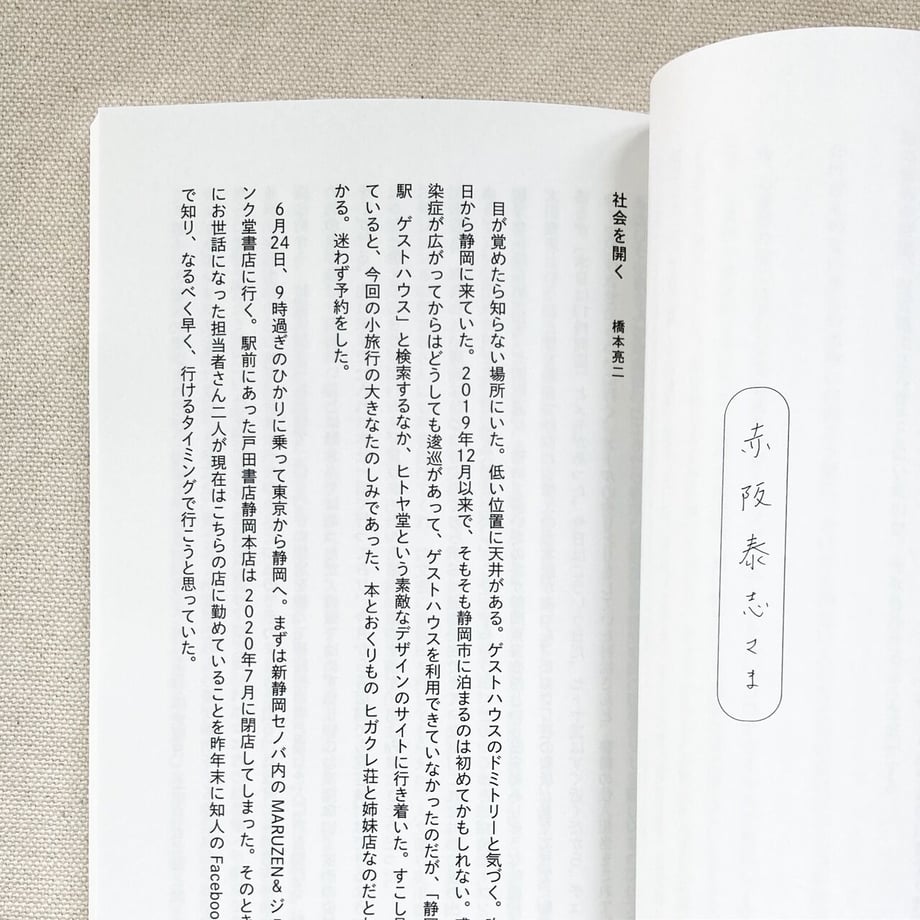 赤阪泰志さま
社会を開く　橋本亮二
目が覚めたら知らない場所にいた。低い位置に天井がある。ゲストハウスのドミトリーと気づく。
日から静岡に来ていた。2019年12月以来で、そもそも静岡市に泊まるのは初めてかもしれない。
染症が広がってからはどうしても逡巡があって、ゲストハウスを利用できていなかったのだが、「静岡
駅　ゲストハウス」と検索するなか、ヒトヤ堂という素敵なデザインのサイトに行き着いた。すこし
ていると、今回の小旅行の大きなたのしみであった、本とおくりもの ヒガクレ荘と姉妹店なのだと
かる。迷わず予約をした。
6月24日、9時過ぎのひかりに乗って東京から静岡へ。まずは新静岡セノバ内の MARUZEN&ジ
ンク堂書店に行く。駅前にあった戸田書店静岡本店は2020年7月に閉店してしまった。そのとき
にお世話になった担当者さん二人が現在はこちらの店に勤めていることを昨年末に知人の Faceboo
で知り、なるべく早く、行けるタイミングで行こうと思っていた。